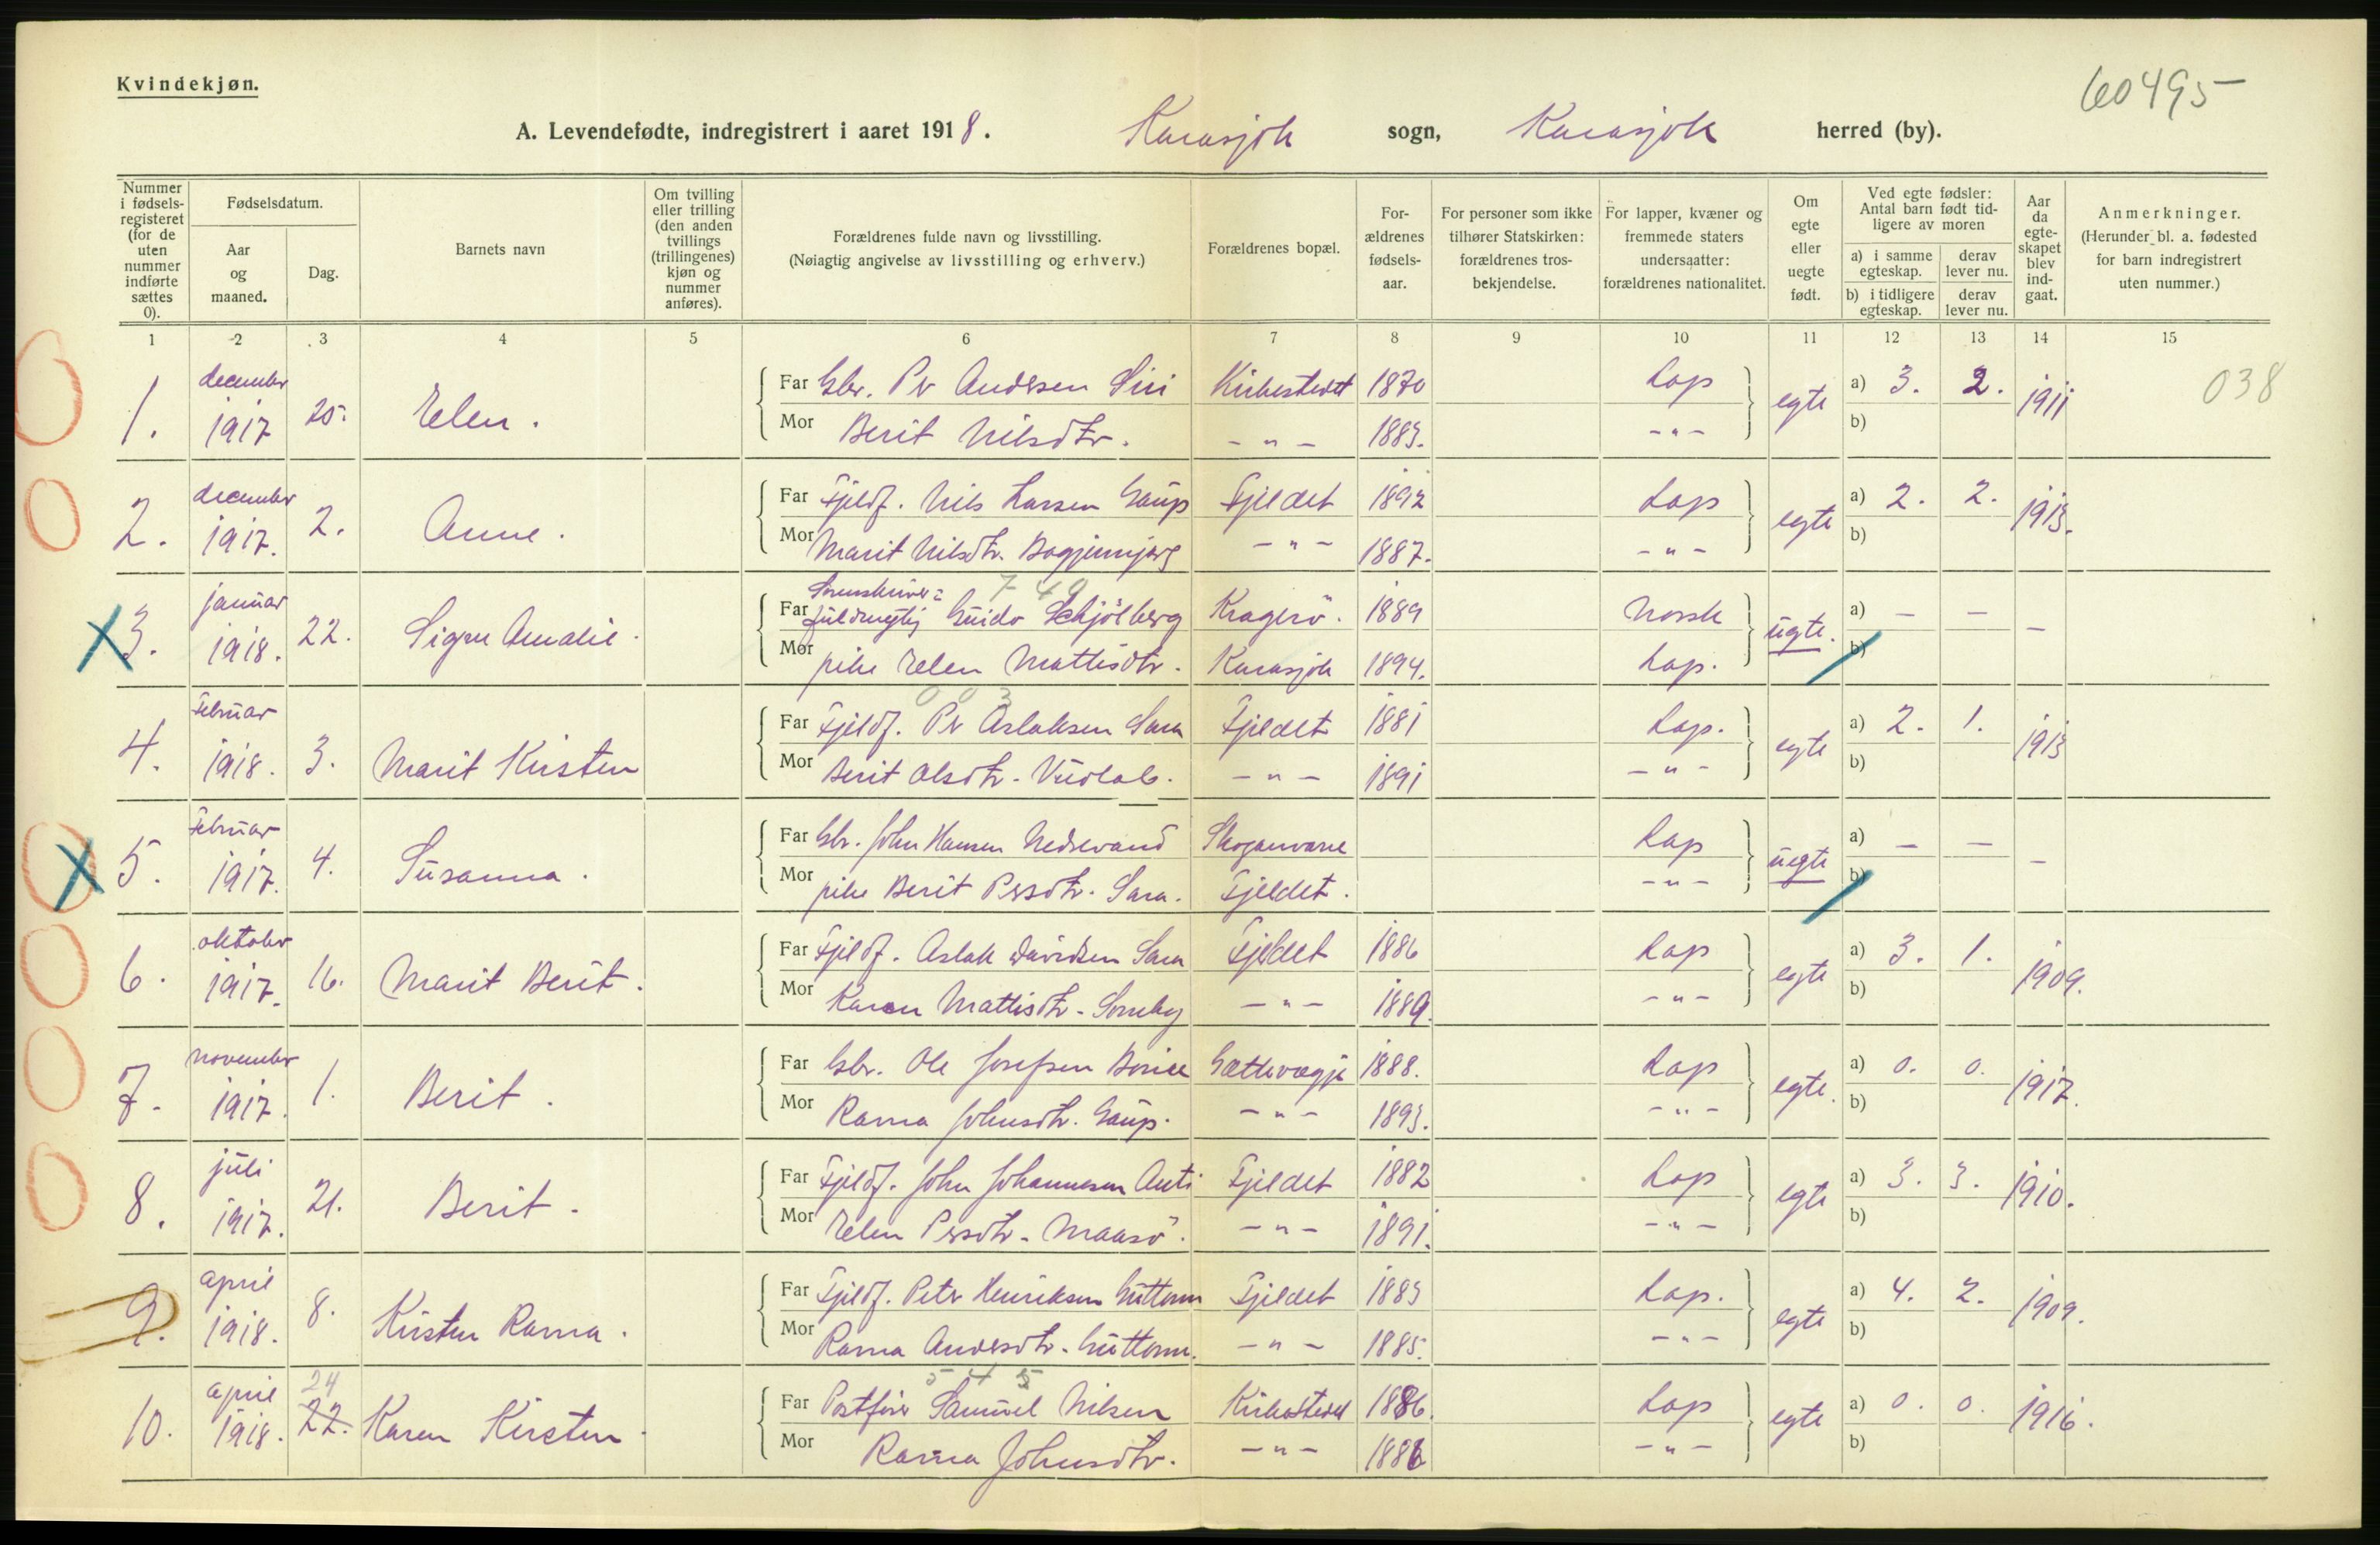 Kvindekjøn.
60495
A. Levendefødte, indregistrert i aaret 1918. Karasjok sogn, Karasjok herred (by).
Nummer i fødsels-registeret (for de uten nummer indførte sættes 0).
Fødselsdatum.
Aar og maaned.
Dag.
Barnets navn
Om tvilling eller trilling (den anden tvillings (trillingenes) kjøn og nummer anføres).
Forældrenes fulde navn og livsstilling.
(Nøiagtig angivelse av livsstilling og erhverv.)
Forældrenes bopæl.
For-ældrenes fødsels-aar.
For personer som ikke tilhører Statskirken: forældrenes tros-bekjendelse.
For lapper, kvæner og fremmede staters undersaatter: forældrenes nationalitet.
Om egte eller uegte født.
Ved egte fødsler: Antal barn født tid-ligere av moren
a) i samme egteskap.
derav lever nu.
b) i tidligere egteskap.
derav lever nu.
Aar da egte-skapet blev ind-gaat.
Anmerkninger.
(Herunder bl. a. fødested for barn indregistrert uten nummer.)
1 2 3 4 5 6 7 8 9 10 11 12 13 14 15
1. december 1917 25. Elen. Far Gbr. Per Andersen Siri Kirkestedet 1870 Lap egte a) 3. 2. 1911 038
Mor Berit Nilsdtr. - " - 1883. - " - b)
2. december 1917. 2. Anne. Far Fjeldf. Nils Larsen Gaup Fjeldet 1892 Lap egte a) 2. 2. 1913.
Mor Marit Nilsdtr. - " - 1887. - " - b)
7 49
3. januar 1918. 22. Signe Amalie. Far Sorenskriver= fuldmegtig Guido Schjölberg Kragerö. 1889 Norsk uegte. a) - - -
Mor pike Elen Mattisdtr. Karasjok 1894. Lap. b)
0 0 3
4. Februar 1918. 3. Marit Kirsten Far Fjeldf. Per Aslaksen Sara Fjeldet 1881 Lap. egte a) 2. 1. 1913
Mor Berit Olsdtr. - " - 1891 - " - b)
5. Februar 1917. 4. Susanna. Far Gbr. John Hansen Nedrevand Skoganvarre Lap uegte a) - - -
Mor pike Berit Persdtr. Sara. Fjeldet. - " - b)
6. oktober 1917. 16. Marit Berit. Far Fjeldf. Aslak Davidsen Sara Fjeldet 1886 Lap egte a) 3. 1. 1909.
Mor Karen Mattisdtr. Somby - " - 1889. - " - b)
7. november 1917. 1. Berit. Far Gbr. Ole Josefsen 1888. Lap egte. a) 0. 0. 1917.
Mor Ravna Johnsdtr. Gaup. - " - 1893. - " - b)
8. juli 1917. 21. Berit. Far Fjeldf. John Johannesen Anti Fjeldet 1882 Lap egte a) 3. 3. 1910.
Mor Elen Persdtr. Maasö. - " - 1891. - " - b)
9. april 1918. 8. Kirsten Ravna. Far Fjeldf. Peter Henriksen Guttorm Fjeldet 1883 Lap. egte a) 4. 2. 1909.
Mor Ravna Andersdtr. Guttorm. - " - 1885. - " - b)
5 4 5
10. april 1918. 24 22. Karen Kirsten. Far Postfører Samuel Nilsen Kirkestedet 1886. Lap egte a) 0. 0. 1916.
Mor Ravna Johnsdtr. - " - 1886 - " - b)